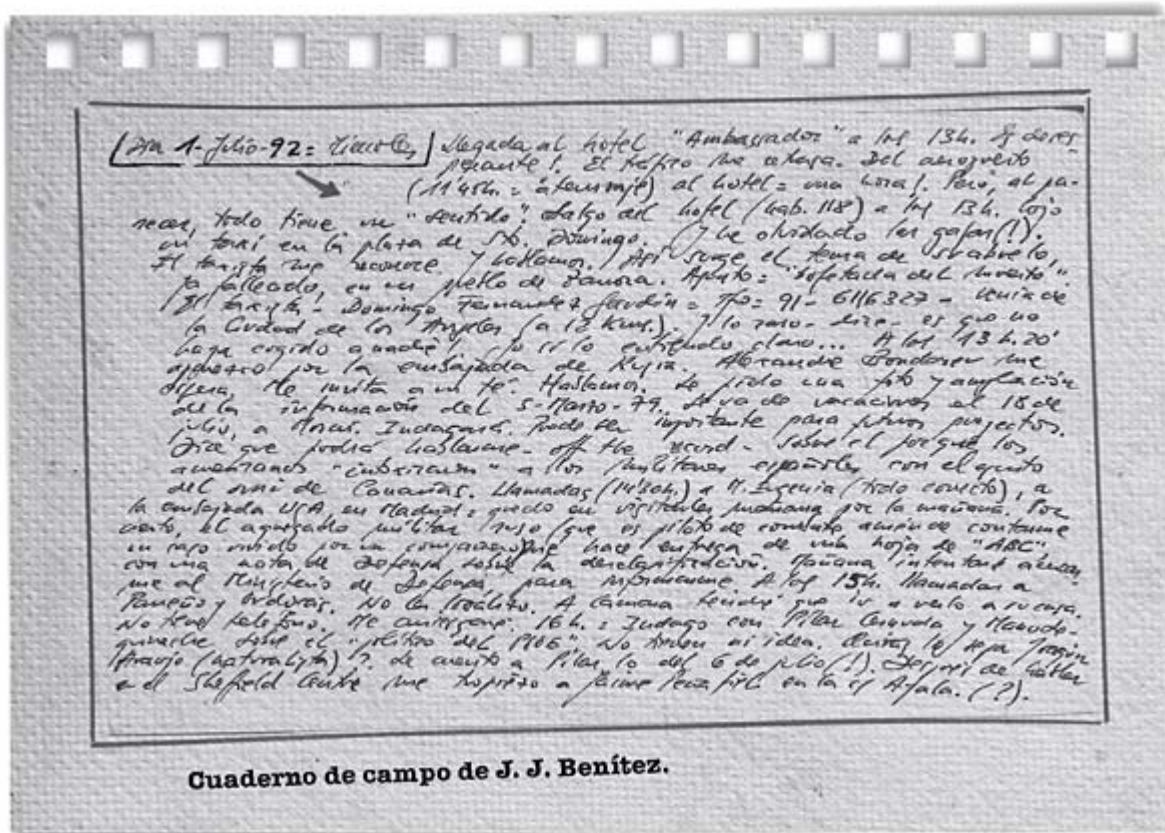 Día 1-Julio-92 = Miércoles llegada al hotel "Ambassador" a las 13h. ¡Es deses-
perante! El tráfico me retrasa. Del aeropuerto
(11'45h. = aterrizaje) al hotel = una hora!. Pero, al pa-
recer, todo tiene un "sentido". Salgo del hotel (hab. 118) a las 13h. Cojo
un taxi en la plaza de Sto. Domingo. ¡Y he olvidado las gafas(!).
El taxista me reconoce y hablamos. Así surge el tema de su abuelo,
ya fallecado, en un pueblo de Zamora. Apunto = "bofetada del muerto".
El taxista - Domingo Fernandez = Tfo = 91- 6116327 - venía de
la Ciudad de los Angeles (a 12 kms.). Y lo raro - dice - es que no
haya cogido a nadie! Yo sí lo entiendo claro... A las 13h.20'
aparezco por la embajada de Rusia. Alexandre me
espera. Me invita a un té. Hablamos. Le pido una foto y ampliación
de la información del 5-Marzo-79. Se va de vacaciones el 18 de
julio, a Moscú. Indagará. Puede ser importante para futuros proyectos.
Dice que podrá hablarme - off the record - sobre el porqué los
americanos "intoxicaron" a los militares españoles con el
del ovni de Canarias. Llamadas (14'30h.) a (todo correcto), a
la embajada USA, en Madrid = quedo en visitarles mañana por la mañana. Por
cierto, el agregado militar ruso (que es piloto de combate amén de contarme
un caso vivido por un compañero) me hace entrega de una hoja de "ABC"
con una nota de Defensa sobre la desclasificación. Mañana intentaré acercar-
me al Ministerio de Defensa para informarme. A las 15h. llamadas a
y. No los localizo. A Camara tendré que ir a verlo a su casa.
No tiene teléfono. 16h. = Indago con Pilar y Manu
sobre el del 1906". No tienen ni idea. Quizá lo sepa Joaquín
Araujo (naturalista)!?. Le cuento a Pilar lo del 6 de julio(!). Después de hablar
en el Sheffield Centre me tropiezo a Jaime Peñafiel en la c/ Ayala. (?).
Cuaderno de campo de J. J. Benítez.